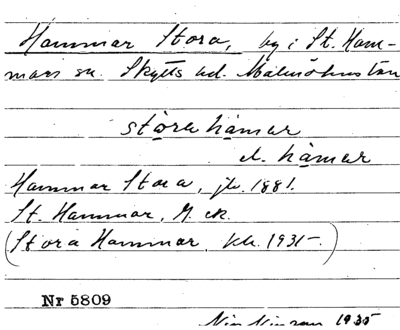 Hammar Stora, by i St. Ham-
mars sn. Skytts hd. Malmöhus län
stora hamar
el. hamar
Hammar Stora, jb. 1881.
St. Hammar, G. ek.
(Stora Hammar, kb. 1935-)
Nr 5809
1935